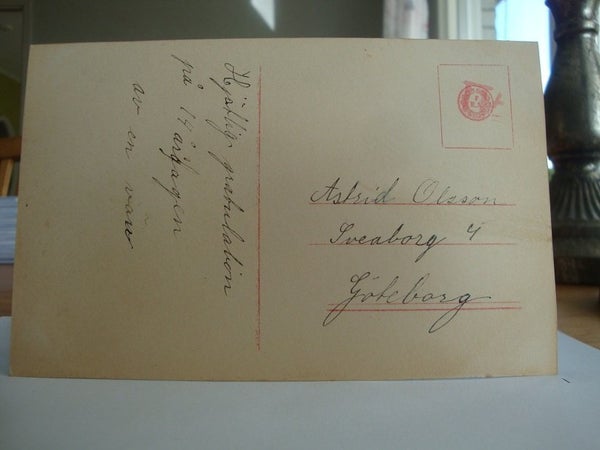 Hjärtlig gratulation
på 14 årsdagen
av en vän
Astrid Olsson
Sveaborg 4
Göteborg